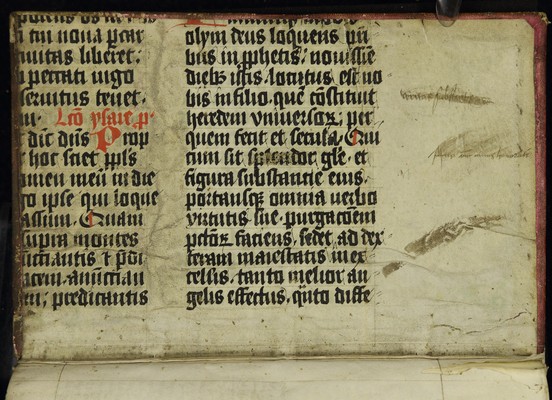 n tu noua p̄car
nuitas liberet;
b peccati iugo
seruitus tenet.
Lc̄o ysaie p̄.
dic̄ dn̄s Prop
hoc sciet ppl̄s
nomen meū in die
go ipse qui loque
assum. Quam
supra montes
nūciantis ⁊ p̄di
acem. anūcian
en; predicantis
olym deus loquens p̄ri
bus in ꝓphetis; nouissīe
dieb⁊ istis locutus est no
bis in filio. quē cōstituit
heredem vniuersoꝝ; per
quem fecit et secula. Qui
cum sit splendor gl̄e. et
figura substancie eius.
portansqꝫ omnia verbo
virtutis sue. purgacōem
pctōꝝ faciens. sedet ad dex
teram maiestatis in ex
celsis. tanto melior an
gelis effectus. qūto diffe